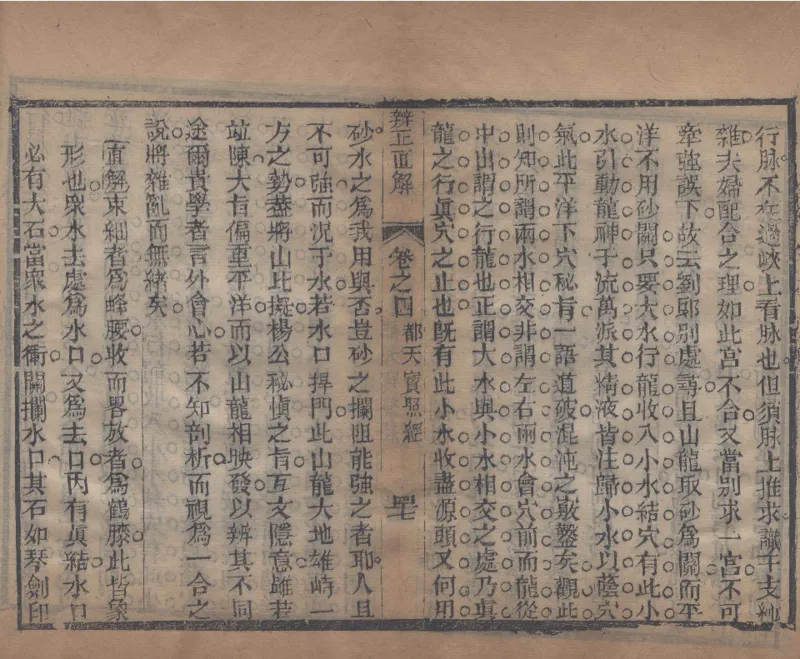 行脉不在過峽上看脉也但須脉上推求識干支純
雜夫婦配合之理如此宮不合又當別求一宮不可
牽強誤下故云劉郎別處尋且山龍取砂爲關而平
洋不用砂關只要大水行龍收入小水結穴有此小
水引動龍神千流萬派其精液皆注歸小水以蔭穴
氣此平洋下穴秘旨一語道破混沌之竅鑿矣觀此
則知所謂兩水相交非謂左右兩水會穴前而龍從
中出謂之行龍也正謂大水與小水相交之處乃真
龍之行真穴之止也既有此小水收盡源頭又何用
辨正直解
卷之四 都天寶照經
砂水之爲我用與否豈砂之攔阻能強之者耶人且
不可強而況于水若水口捍門此山龍大地雄峙一
方之勢葢將山此擬楊公秘慎之旨互文隱意雖若
竝陳大旨偏重平洋而以山龍相映發以辨其不同
途爾貴學者言外會心若不知剖析而視爲一合之
說將雜亂而無緒矣
直解束細者爲峰腰收而畧放者爲鶴膝此皆象
形也衆水去處爲水口又爲去口內有真結水口
必有大石當衆水之衝關攔水口其石如琴劍印